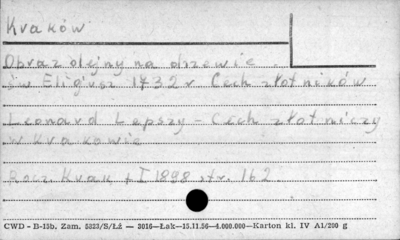 Kraków
Obraz olejny na drzewie
św Eligiusz 1732 r Cech złotników
Leonard Lepszy - Cech złotniczy
w Krakowie
Rocz. Krak. t I 1898 str. 162
CWD - B-11b. Zam. 5823/S/Łż — 3016—Łak—15.11.56—4.000.000—Karton kl. IV A1/200 g